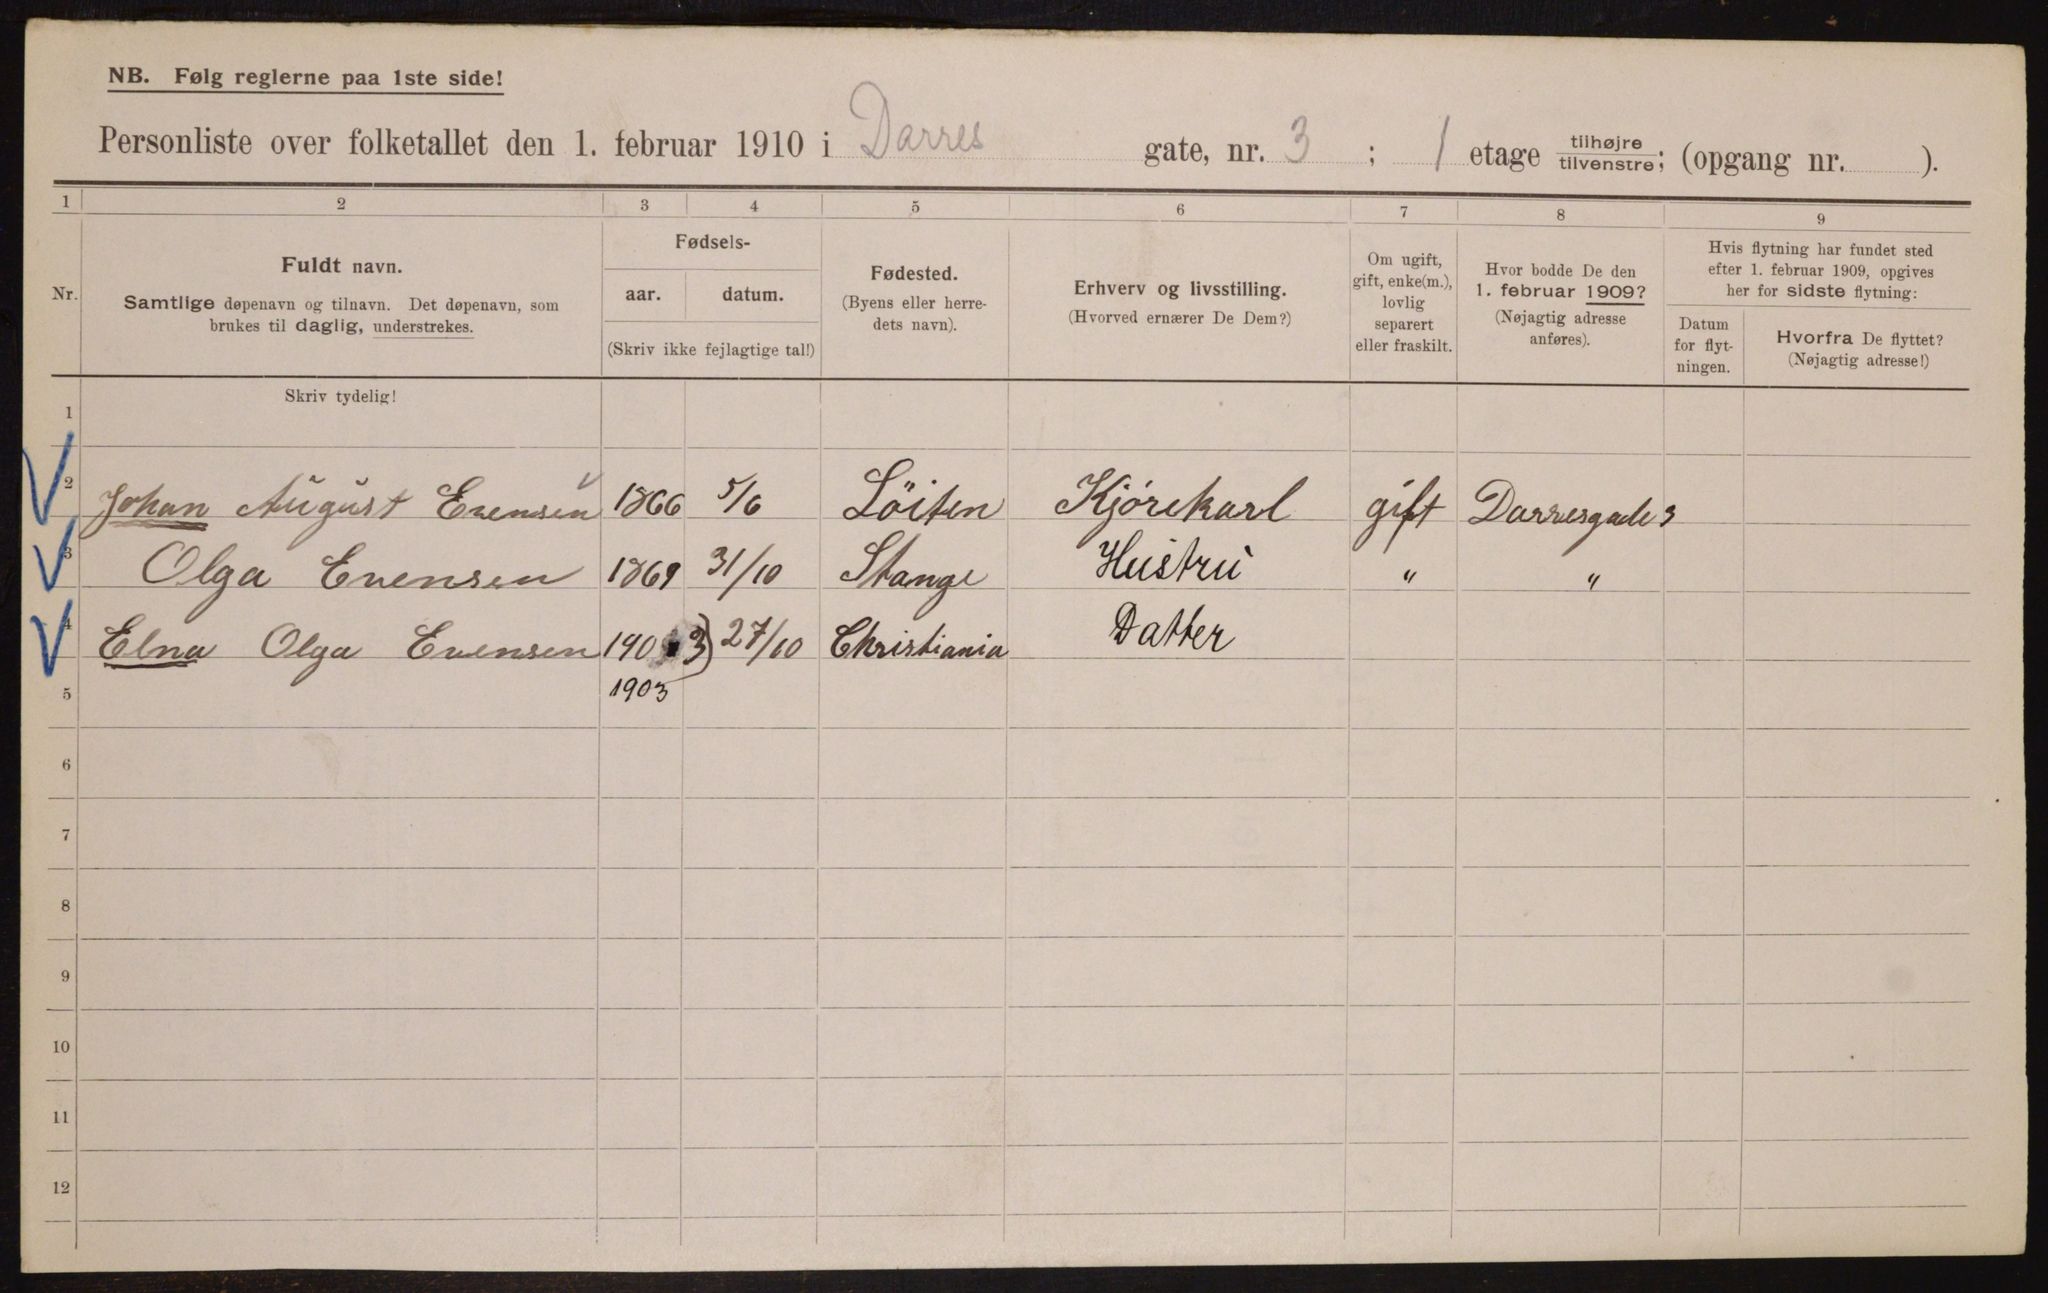 NB. Følg reglerne paa 1ste side!
Personliste over folketallet den 1. februar 1910 i Darres gate, nr. 3 ; 1 etage tilhøjre tilvenstre; (opgang nr. ).
1 2 3 4 5 6 7 8 9
Nr.
Fuldt navn.
Samtlige døpenavn og tilnavn. Det døpenavn, som
brukes til daglig, understrekes.
Fødsels-
aar. datum.
(Skriv ikke fejlagtige tal!)
Fødested.
(Byens eller herre-
dets navn).
Erhverv og livsstilling.
(Hvorved ernærer De Dem?)
Om ugift,
gift, enke(m.),
lovlig
separert
eller fraskilt.
Hvor bodde De den
1. februar 1909?
(Nøjagtig adresse
anføres).
Hvis flytning har fundet sted
efter 1. februar 1909, opgives
her for sidste flytning:
Datum
for flyt-
ningen.
Hvorfra De flyttet?
(Nøjagtig adresse!)
Skriv tydelig!
1
2 Johan August Evensen 1866 5/6 Löiten Kjörekarl gift Darresgade 3
3 Olga Evensen 1869 31/10 Stange Hustru " "
4 Elna Olga Evensen 190 3) 27/10 Christiania Datter
5 1903
6
7
8
9
10
11
12